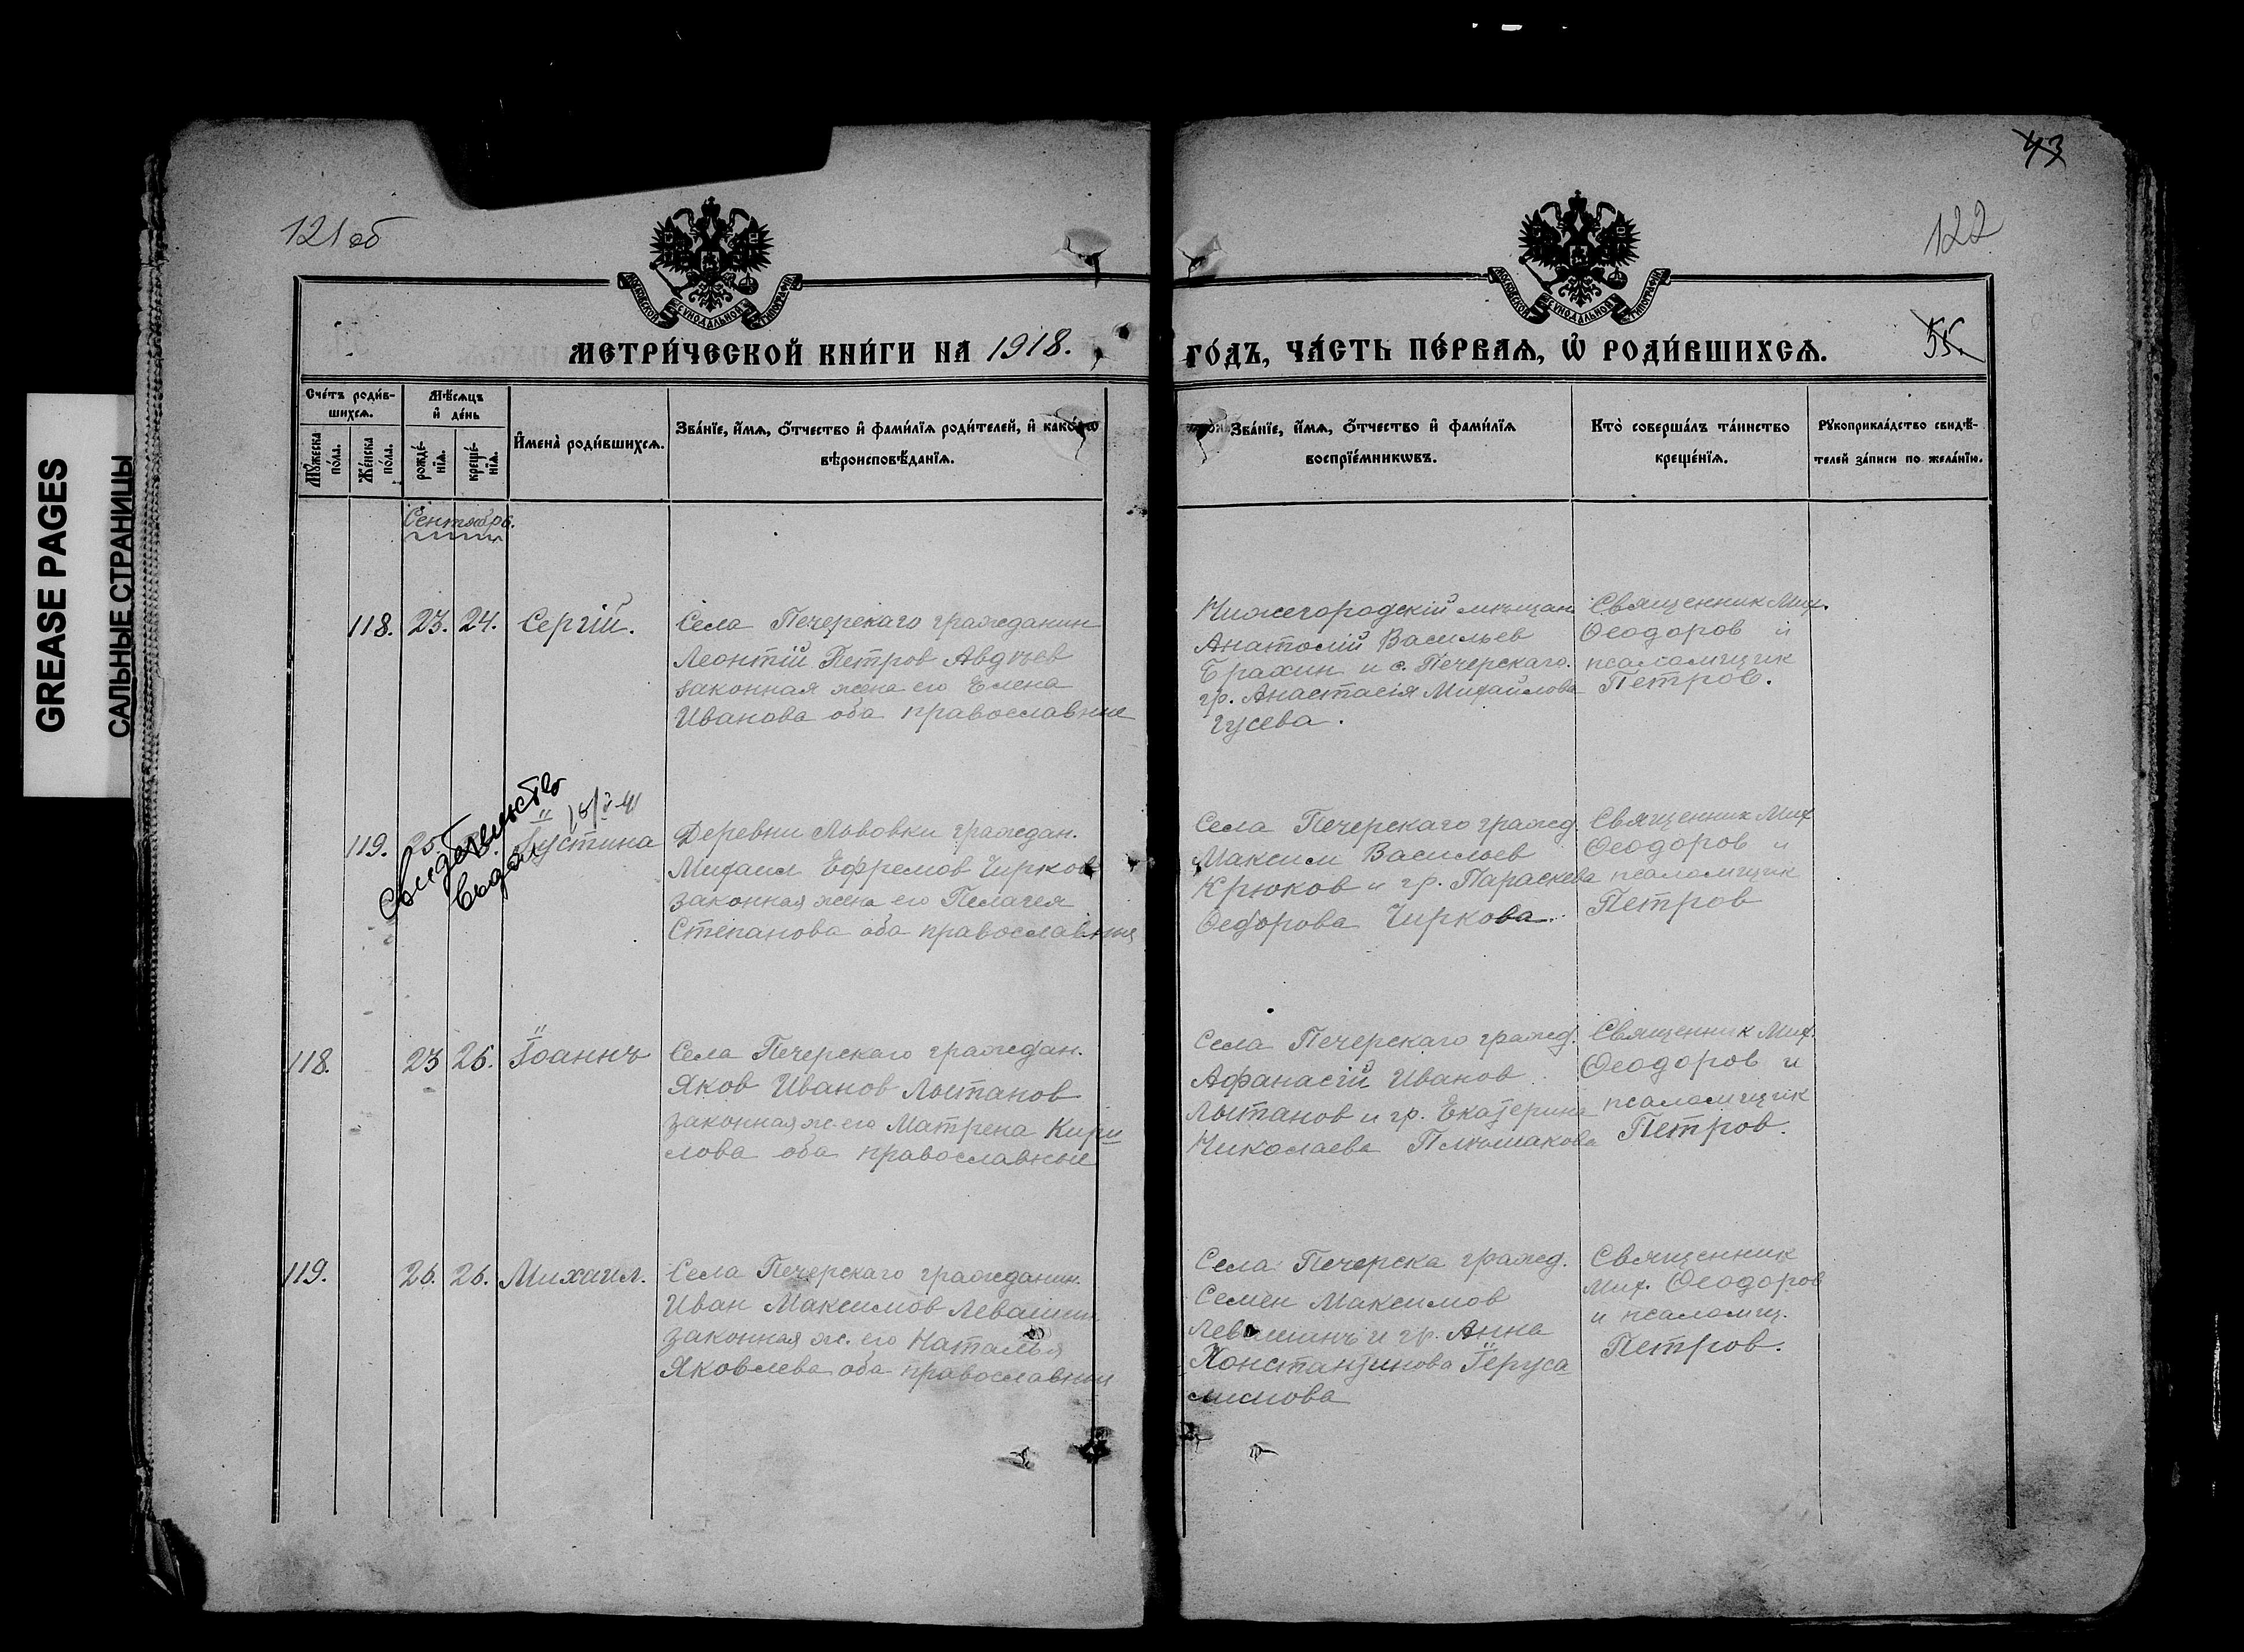 GREASE PAGES
САЛЬНЫЕ СТРАНИЦЫ
43
121об
122
МОСКОВСКОЙ СѴНОДАЛЬНОЙ ТИПОГРАФІИ
МОСКОВСКОЙ СѴНОДАЛЬНОЙ ТИПОГРАФІИ
МЕТРИ́ЧЕСКОЙ КНИ́ГИ НА 1918.
ГО́ДЪ, ЧА́СТЬ ПЕ́РВАѦ, Ѽ РОДИ́ВШИХСѦ.
55.
Сче́тъ роди́в-
шихсѧ.
Мѣ́сѧцъ
и҆ де́нь
Мꙋ́жеска
по́ла.
Же́нска
по́ла.
рожде́-
нїѧ.
креще́-
нїѧ.
И҆мена̀ роди́вшихсѧ.
Зва́нїе, и҆́мѧ, ѻ҆́тчество и҆ фами́лїѧ роди́телей, и҆ како́гѡ
вѣроисповѣ́данїѧ.
Зва́нїе, и҆́мѧ, ѻ҆́тчество и҆ фами́лїѧ
воспрїе́мникѡвъ.
Кто̀ соверша́лъ та́инство
креще́нїѧ.
Рꙋкоприкла́дство свидѣ́-
телей за́писи по жела́нїю.
Сентябрь.
118. 23. 24. Сергій.
Села Печерскаго гражданин
Леонтій Петров Авдѣев
законная жена его Елена
Иванова оба православные
Нижегородскій мѣщан
Анатолій Васильев
Брахин и с. Печерскаго
гр. Анастасія Михайлова
Гусева.
Священник Мих.
Ѳеодоров и
псаломщик
Петров.
свидетельство
выдан
119. 25. Іустина
Деревни Львовки граждан.
Михаил Ефремов Чирков
законная жена его Пелагея
Степанова оба православные
Села Печерскаго гражд.
Максим Васильев
Крюков и гр. Параскева
Ѳедорова Чиркова.
Священник Мих
Ѳеодоров и
псаломщик
Петров
118. 23 26. Іоаннъ
Села Печерскаго граждан.
Яков Иванов Лыстанов
законная ж. его Матрена Кири
лова оба православные
Села Печерскаго гражд.
Афанасій Иванов
Лыстанов и гр. Екатерина
Николаева Плюмакова
Священник Мих.
Ѳеодоров и
псаломщик
Петров.
119. 26. 26. Михаил.
Села Печерскаго гражданин.
Иван Максимов Левашин
законная ж. его Наталья
Яковлева оба православные
Села Печерска гражд.
Семен Максимов
Левашинъ и гр. Анна
Константинова Іеруса
лимова
Священник
Мих. Ѳеодоров
и псаломщ.
Петров.